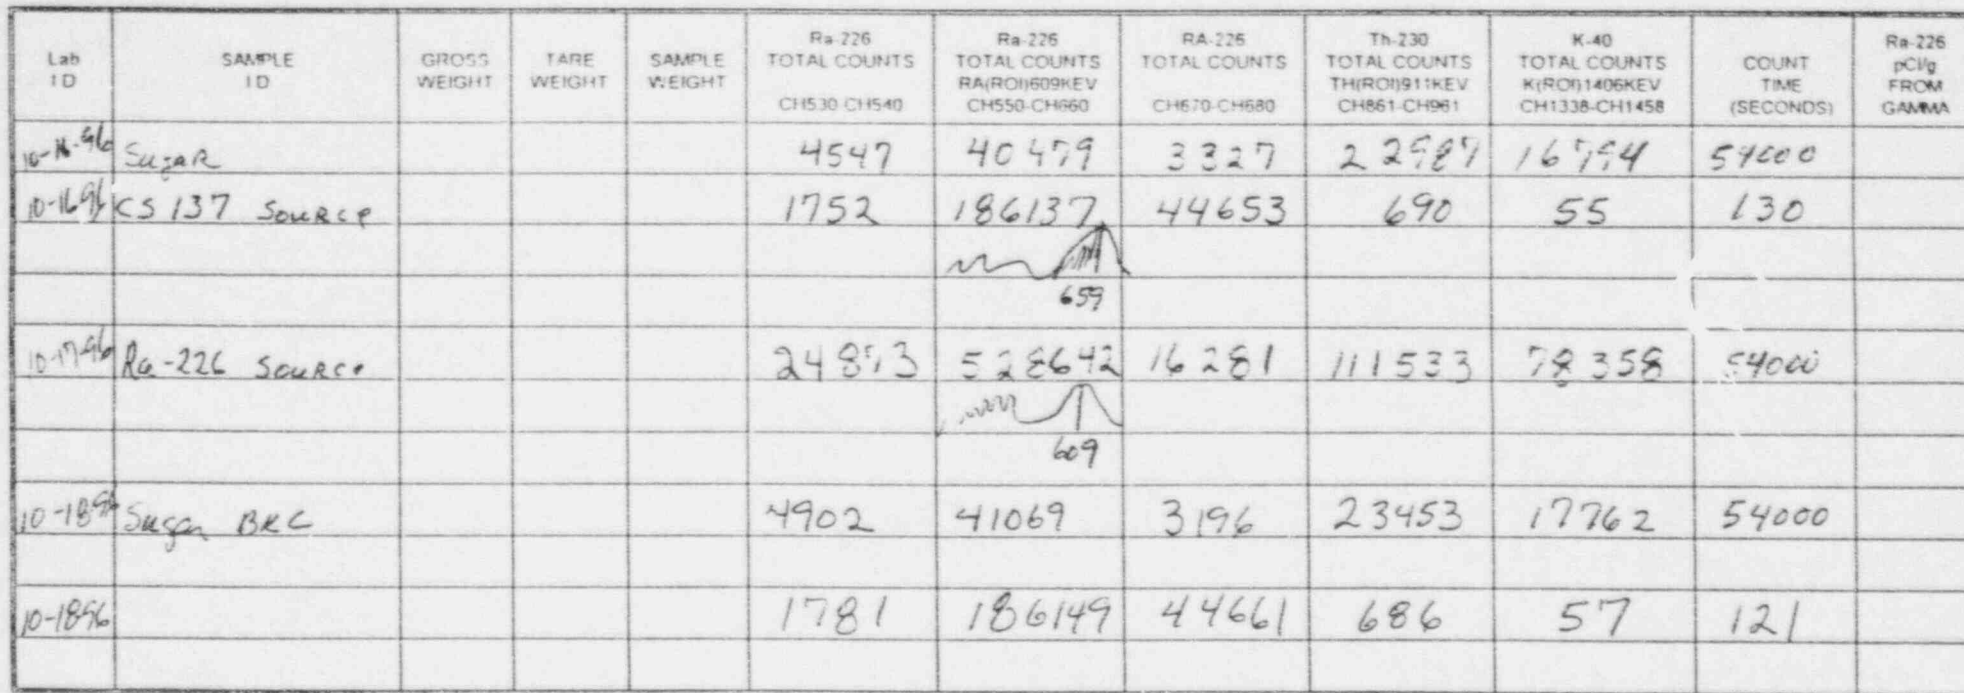 Lab ID | SAMPLE ID | GROSS WEIGHT | TARE WEIGHT | SAMPLE WEIGHT | Ra-226 TOTAL COUNTS CH530-CH540 | Ra-226 TOTAL COUNTS RA(ROI)609KEV CH550-CH660 | RA-226 TOTAL COUNTS CH670-CH680 | Th-230 TOTAL COUNTS TH(ROI)911KEV CH861-CH961 | K-40 TOTAL COUNTS K(ROI)1406KEV CH1338-CH1458 | COUNT TIME (SECONDS) | Ra-226 pCi/g FROM GAMMA
10-16-96 Sugar 4547 40479 3327 54000
10-16-96 CS 137 Source 1752 186137 44653 690 55 130
659
10-17-96 Ra-226 Source 24873 528642 16281 111533 78358 54000
609
10-18-96 Sugar BKG 4902 41069 3196 23453 17762 54000
10-18-96 1781 186149 44661 686 57 121